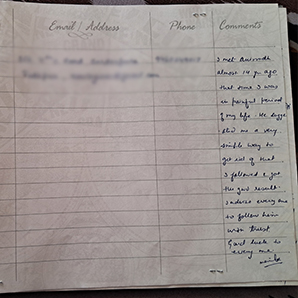 Email / Address Phone Comments
I met
almost 14 yr ago
that time I was
in painful period
of my life. He sugge
sted me a very
simple way to
get rid of that
I followed & got
the good result.
I advice every one
to follow him
with trust
Good luck to
every one